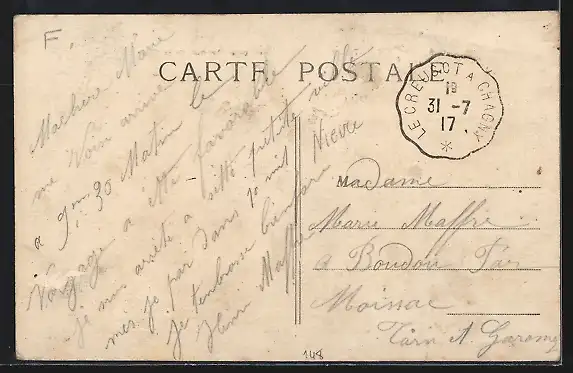 F
CARTE POSTALE
LE CREUSOT A CHAGNY
19
31 -7
17
*
Ma chère Marie
me voici arrivé
a 9h 30 Matin le
Voyage a été favorable
je suis arrêté a cette petite ville
Nievre
mes je par dans 10 mit
je tembrasse bien fort
Henri Maffre
Madame
Marie Maffre
a Boudou Par
Moissac
Tarn & Garonne
148